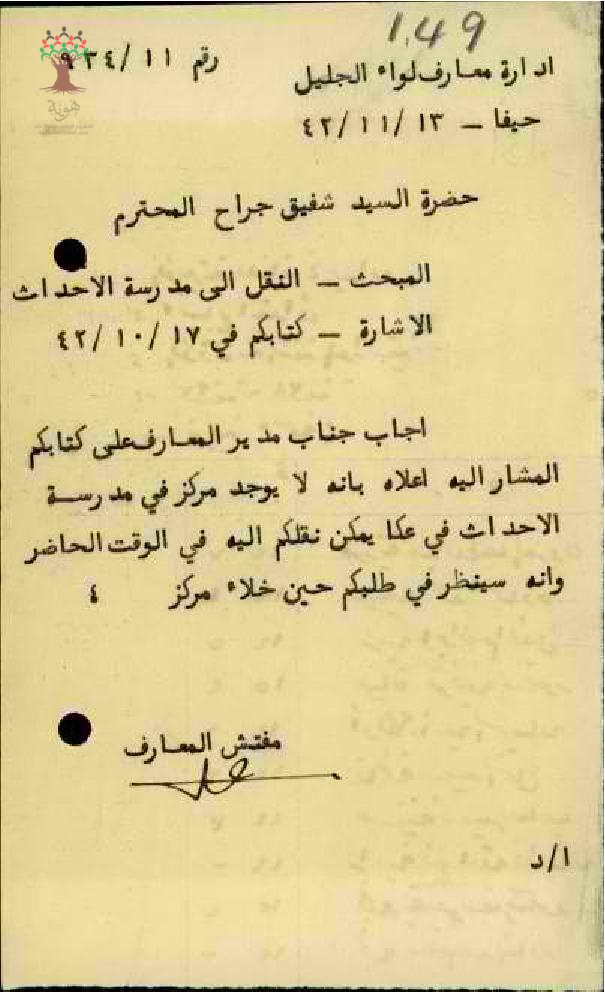 149
ادارة معارف لواء الجليل
رقم ٩٣٤/١١
حيفا – ٤٢/١١/١٣
حضرة السيد شفيق جراح المحترم
المبحث – النقل الى مدرسة الاحداث
الاشارة – كتابكم في ٤٢/١٠/١٧
اجاب جناب مدير المعارف على كتابكم
المشار اليه اعلاه بانه لا يوجد مركز في مدرسة
الاحداث في عكا يمكن نقلكم اليه في الوقت الحاضر
وانه سينظر في طلبكم حين خلاء مركز ٤
مفتش المعارف
ا/د
هوية